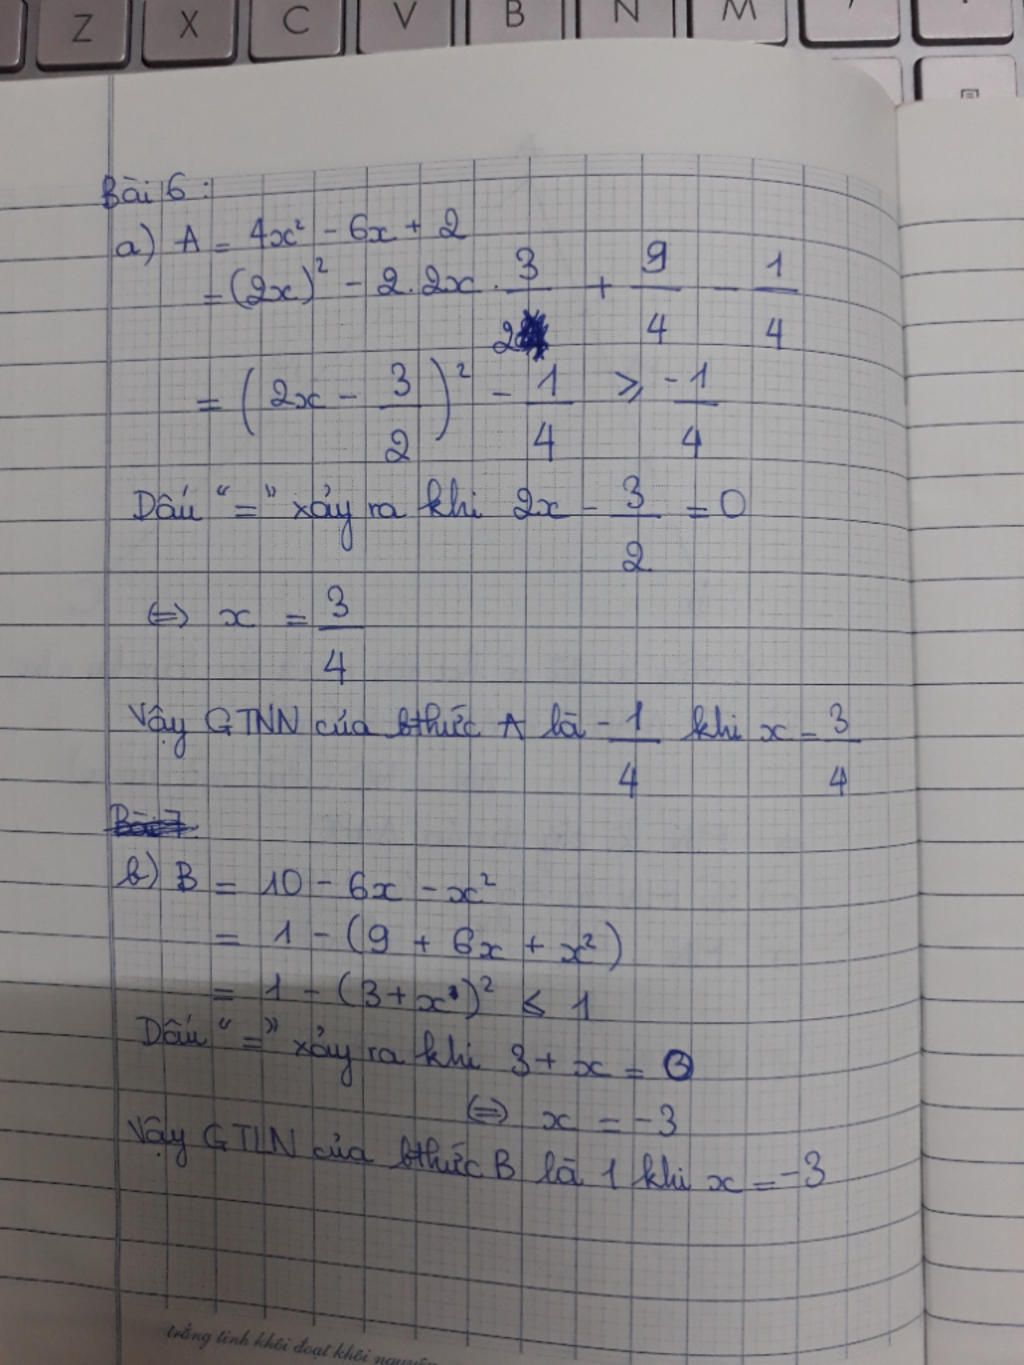 Z X C V B N M
Bài 6:
a) A = 4x² - 6x + 2
= (2x)² - 2.2x.3/2 + 9/4 - 1/4
= (2x - 3/2)² - 1/4 ⩾ -1/4
Dấu "=" xảy ra khi 2x - 3/2 = 0
⇔ x = 3/4
Vậy GTNN của bthức A là -1/4 khi x = 3/4
Bài 7
b) B = 10 - 6x - x²
= 1 - (9 + 6x + x²)
= 1 - (3 + x)² ⩽ 1
Dấu "=" xảy ra khi 3 + x = 0
⇔ x = -3
Vậy GTLN của bthức B là 1 khi x = -3
trắng tinh khôi đoạt khôi nguyên